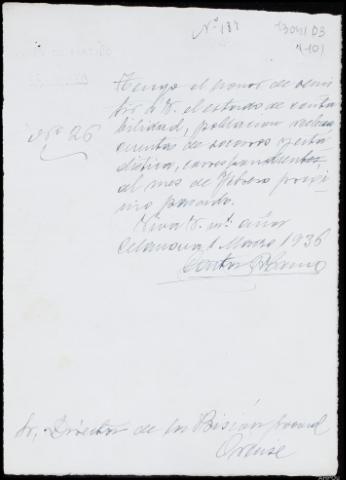 Nº 188
13041/D3
4-101
Tengo el honor de remi
tir a V. el estado de conta
bilidad, poblacion reclusa
cuentas de socorros y esta
dística, correspondientes
al mes de Febrero proxi
mo pasado.
Nº 26
Viva V. ms. años
Celanova, 1 Marzo 1936
Sr. Director de la Prisión provincial
Orense